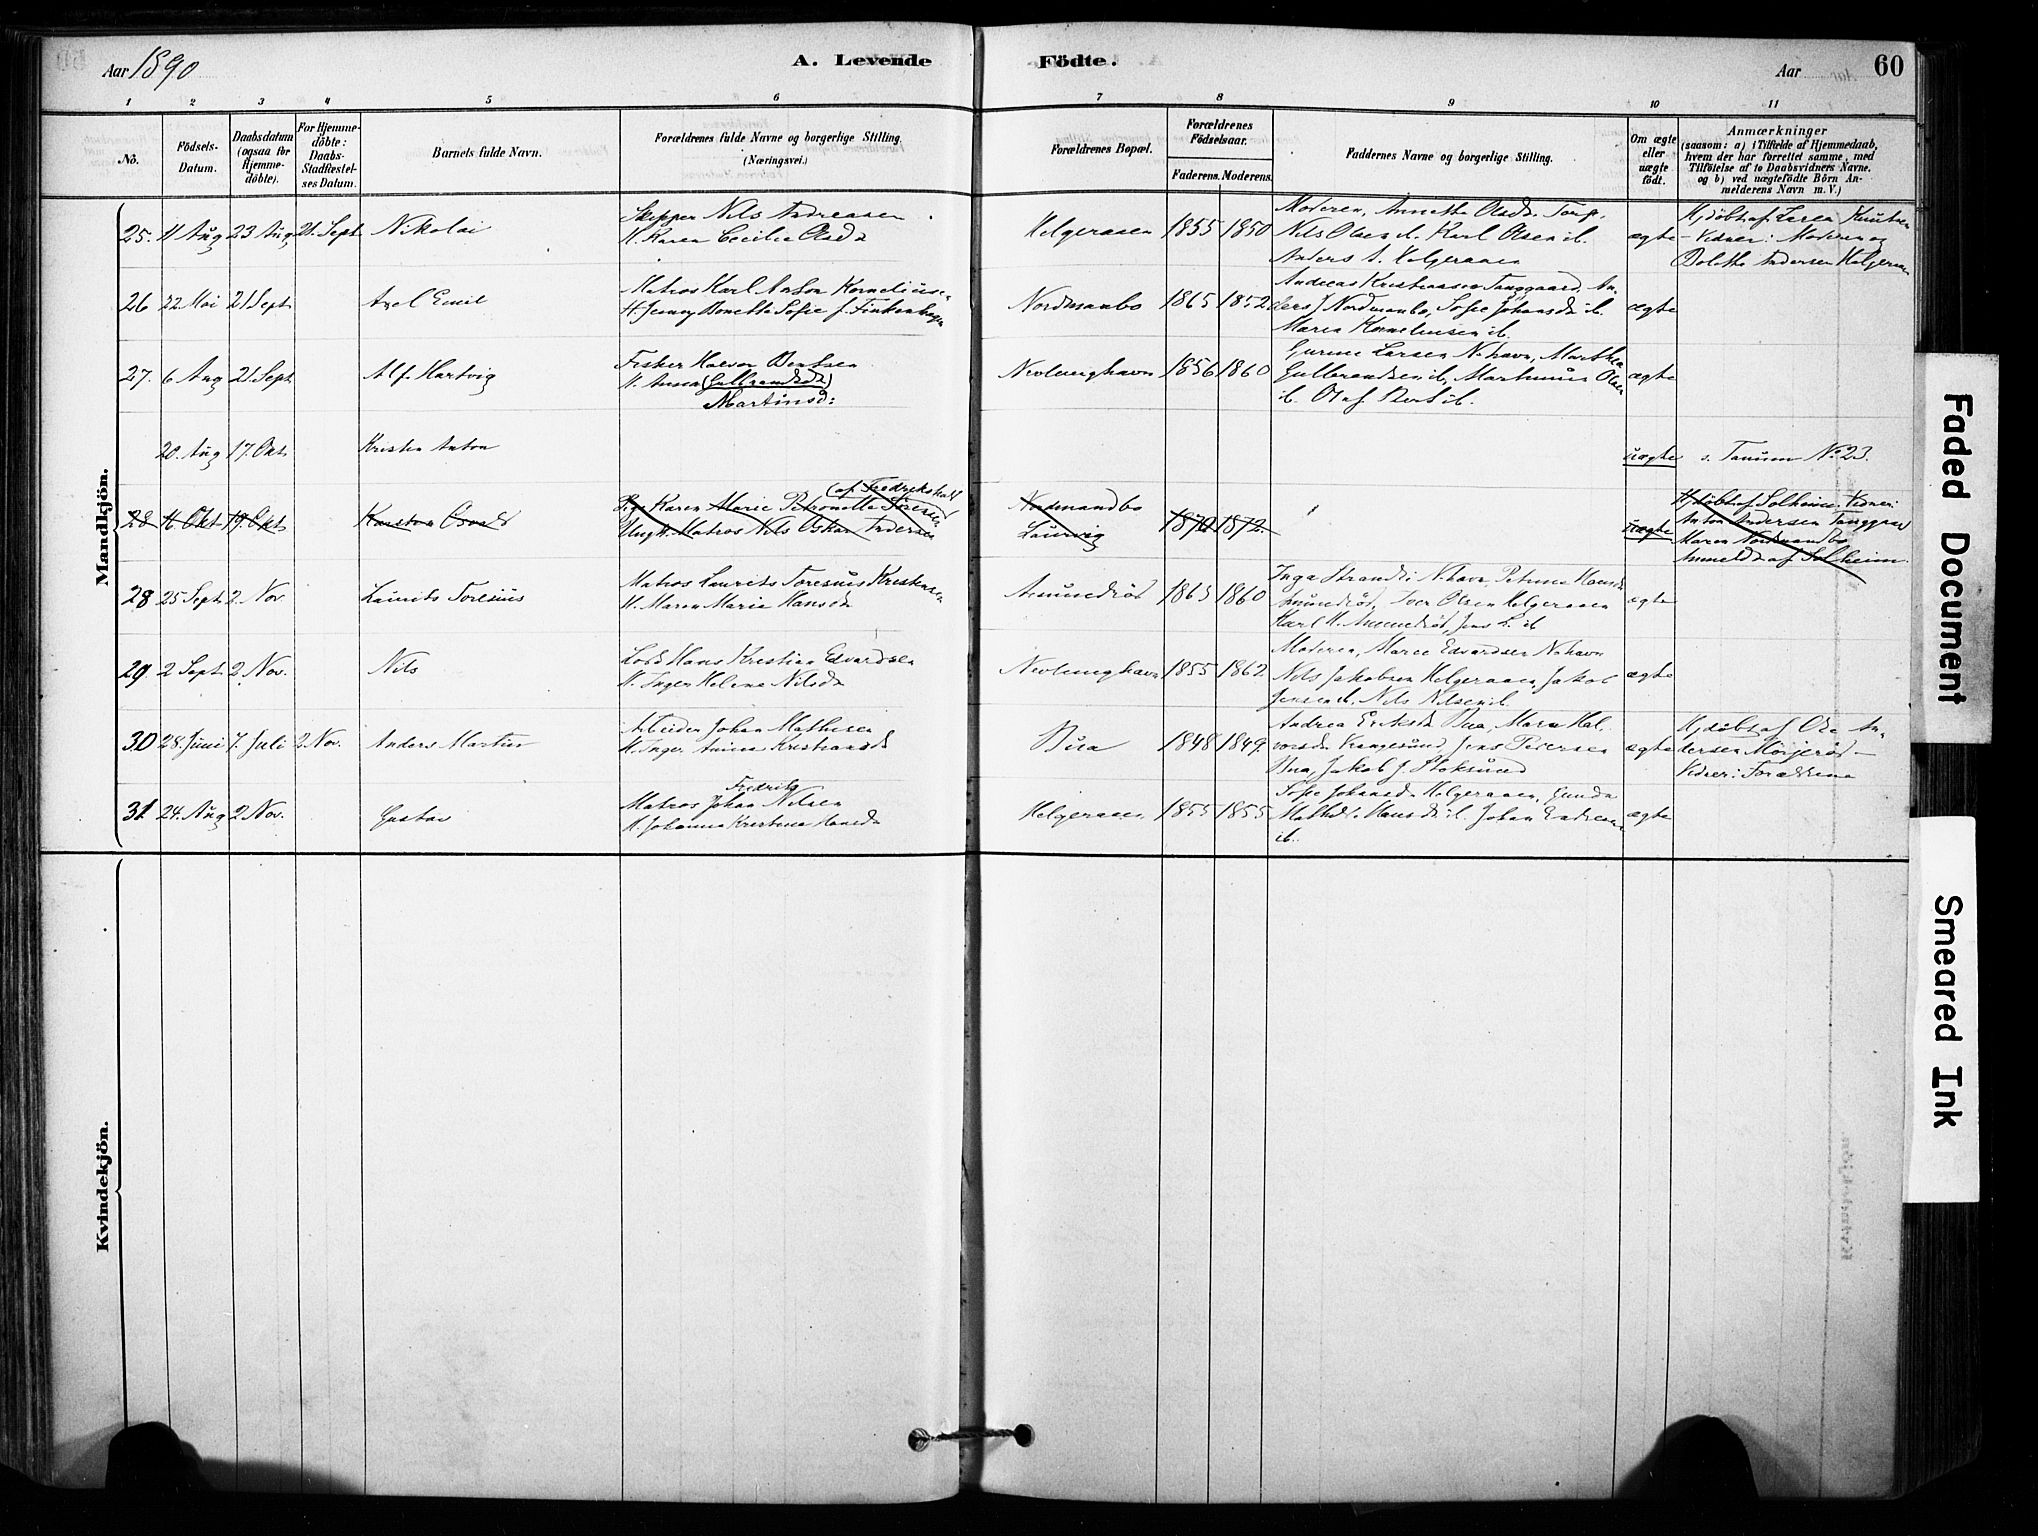 Aar 1890
A. Levende
Födte.
Aar
60
1 2 3 4 5 6 7 8 9 10 11
No.
Födsels-
Datum.
Daabsdatum
(ogsaa for
Hjemme-
döbte).
For Hjemme-
döbte:
Daabs-
Stadfæstel-
ses Datum.
Barnets fulde Navn.
Forældrenes fulde Navne og borgerlige Stilling.
(Næringsvei.)
Forældrenes Bopæl.
Forældrenes
Födselsaar.
Faderens. Moderens.
Faddernes Navne og borgerlige Stilling.
Om ægte
eller
uægte
födt.
Anmærkninger
(saasom: a) i Tilfælde af Hjemmedaab,
hvem der har forrettet samme, med
Tilföielse af to Daabsvidners Navne.
og b) ved uægtefödte Börn An-
melderens Navn m. V.)
Mandkjön.
25. 11 Aug 23 Aug 21. Sept Nikolai
Skipper Nils Andreasen
H. Karen Cecilie Olsd
Helgeraaen 1855 1850
Moderen, Annette Olsd. Torp,
Nils Olsen ib. Karl Olsen ib.
Anders A. Helgeraaen
ægte
Hjdöbt af Knutsen
Vidner: Moderen og
Andersen Helgeraaen
26 22 Mai 21 Sept Axel Emil
Matros Karl Anton Kornelius
H. Jenny Bonette Sofie f. Finkenhagen
Nordmanbo 1865 1852
Andreas Kristiansen Tanggaard, An-
ders J. Nordmanbo, Sofie Johansd ib.
Maren Korneliusen ib.
ægte
27. 6 Aug 21. Sept Alf Hartvig
Fisker Halvor Berntsen
H. Anna (Gulbrandsd)
Martinsd:
Nevlunghavn 1856 1860
Larsen N.havn, Marthea
Gulbrandsen ib, Martinius Olsen
ib. Olaf Berts ib.
ægte
20. Aug 17. Okt Kristen Anton
uægte s. Tanum No 23.
28 16 Okt 19. Okt Karsten Osvald
(af Fredrikshald
Pige Karen Marie Petronelle Sörensen
Ungk. Matros Nils Oskar Andersen
Nordmandbo
Laurvig
1870 1872.
uægte
Hjdöbt af Solheim. Vidner:
Anton Andersen Tanggaard
Maren Nordmandbo
Anmeldt af Solheim.
28 25 Sept 2. Nov. Laurits Toresius
Matros Laurits Toresius Kristensen
H. Maren Marie Hansd
Amundröd 1863 1860
Inga Strands: N.havn, Petrine Hansd
Amundröd, Iver Olsen Helgeraaen
Karl H. Amundröd, Jens L. ib
ægte
29 2 Sept 2 Nov. Nils
Lods Hans Kristian Edvardsen
H. Inger Helene Nilsd
Nevlunghavn 1855 1862
Moderen, Maree Edvardsen N.havn
Nils Jakobsen Helgeraaen, Jakob
Jensen ib, Nils Nilsen ib.
ægte
30 28. Juni 7. Juli 2 Nov. Anders Martin
Arbeider Johan Mathisen
H. Inger Anina Kristiansd
Bua 1848 1849.
Andrea Eriksd Bua, Maren Hal-
vorsd Krangesund, Jens Pedersen
Bua, Jakob J. Stoksund
ægte
Hjdöbt af Ole An-
dersen Möijeröd
Vidner: Forældrene
31 24. Aug 2 Nov. Gustav
Fredrik
Matros Johan Nilsen
H. Johanna Kristina Hansd
Helgeraaen 1855 1855
Sofie Johansd Helgeraaen, Gunda
Mathilde Hansd ib. Johan Endresen
ib.
ægte
Kvindekjön.
Faded Document
Smeared Ink